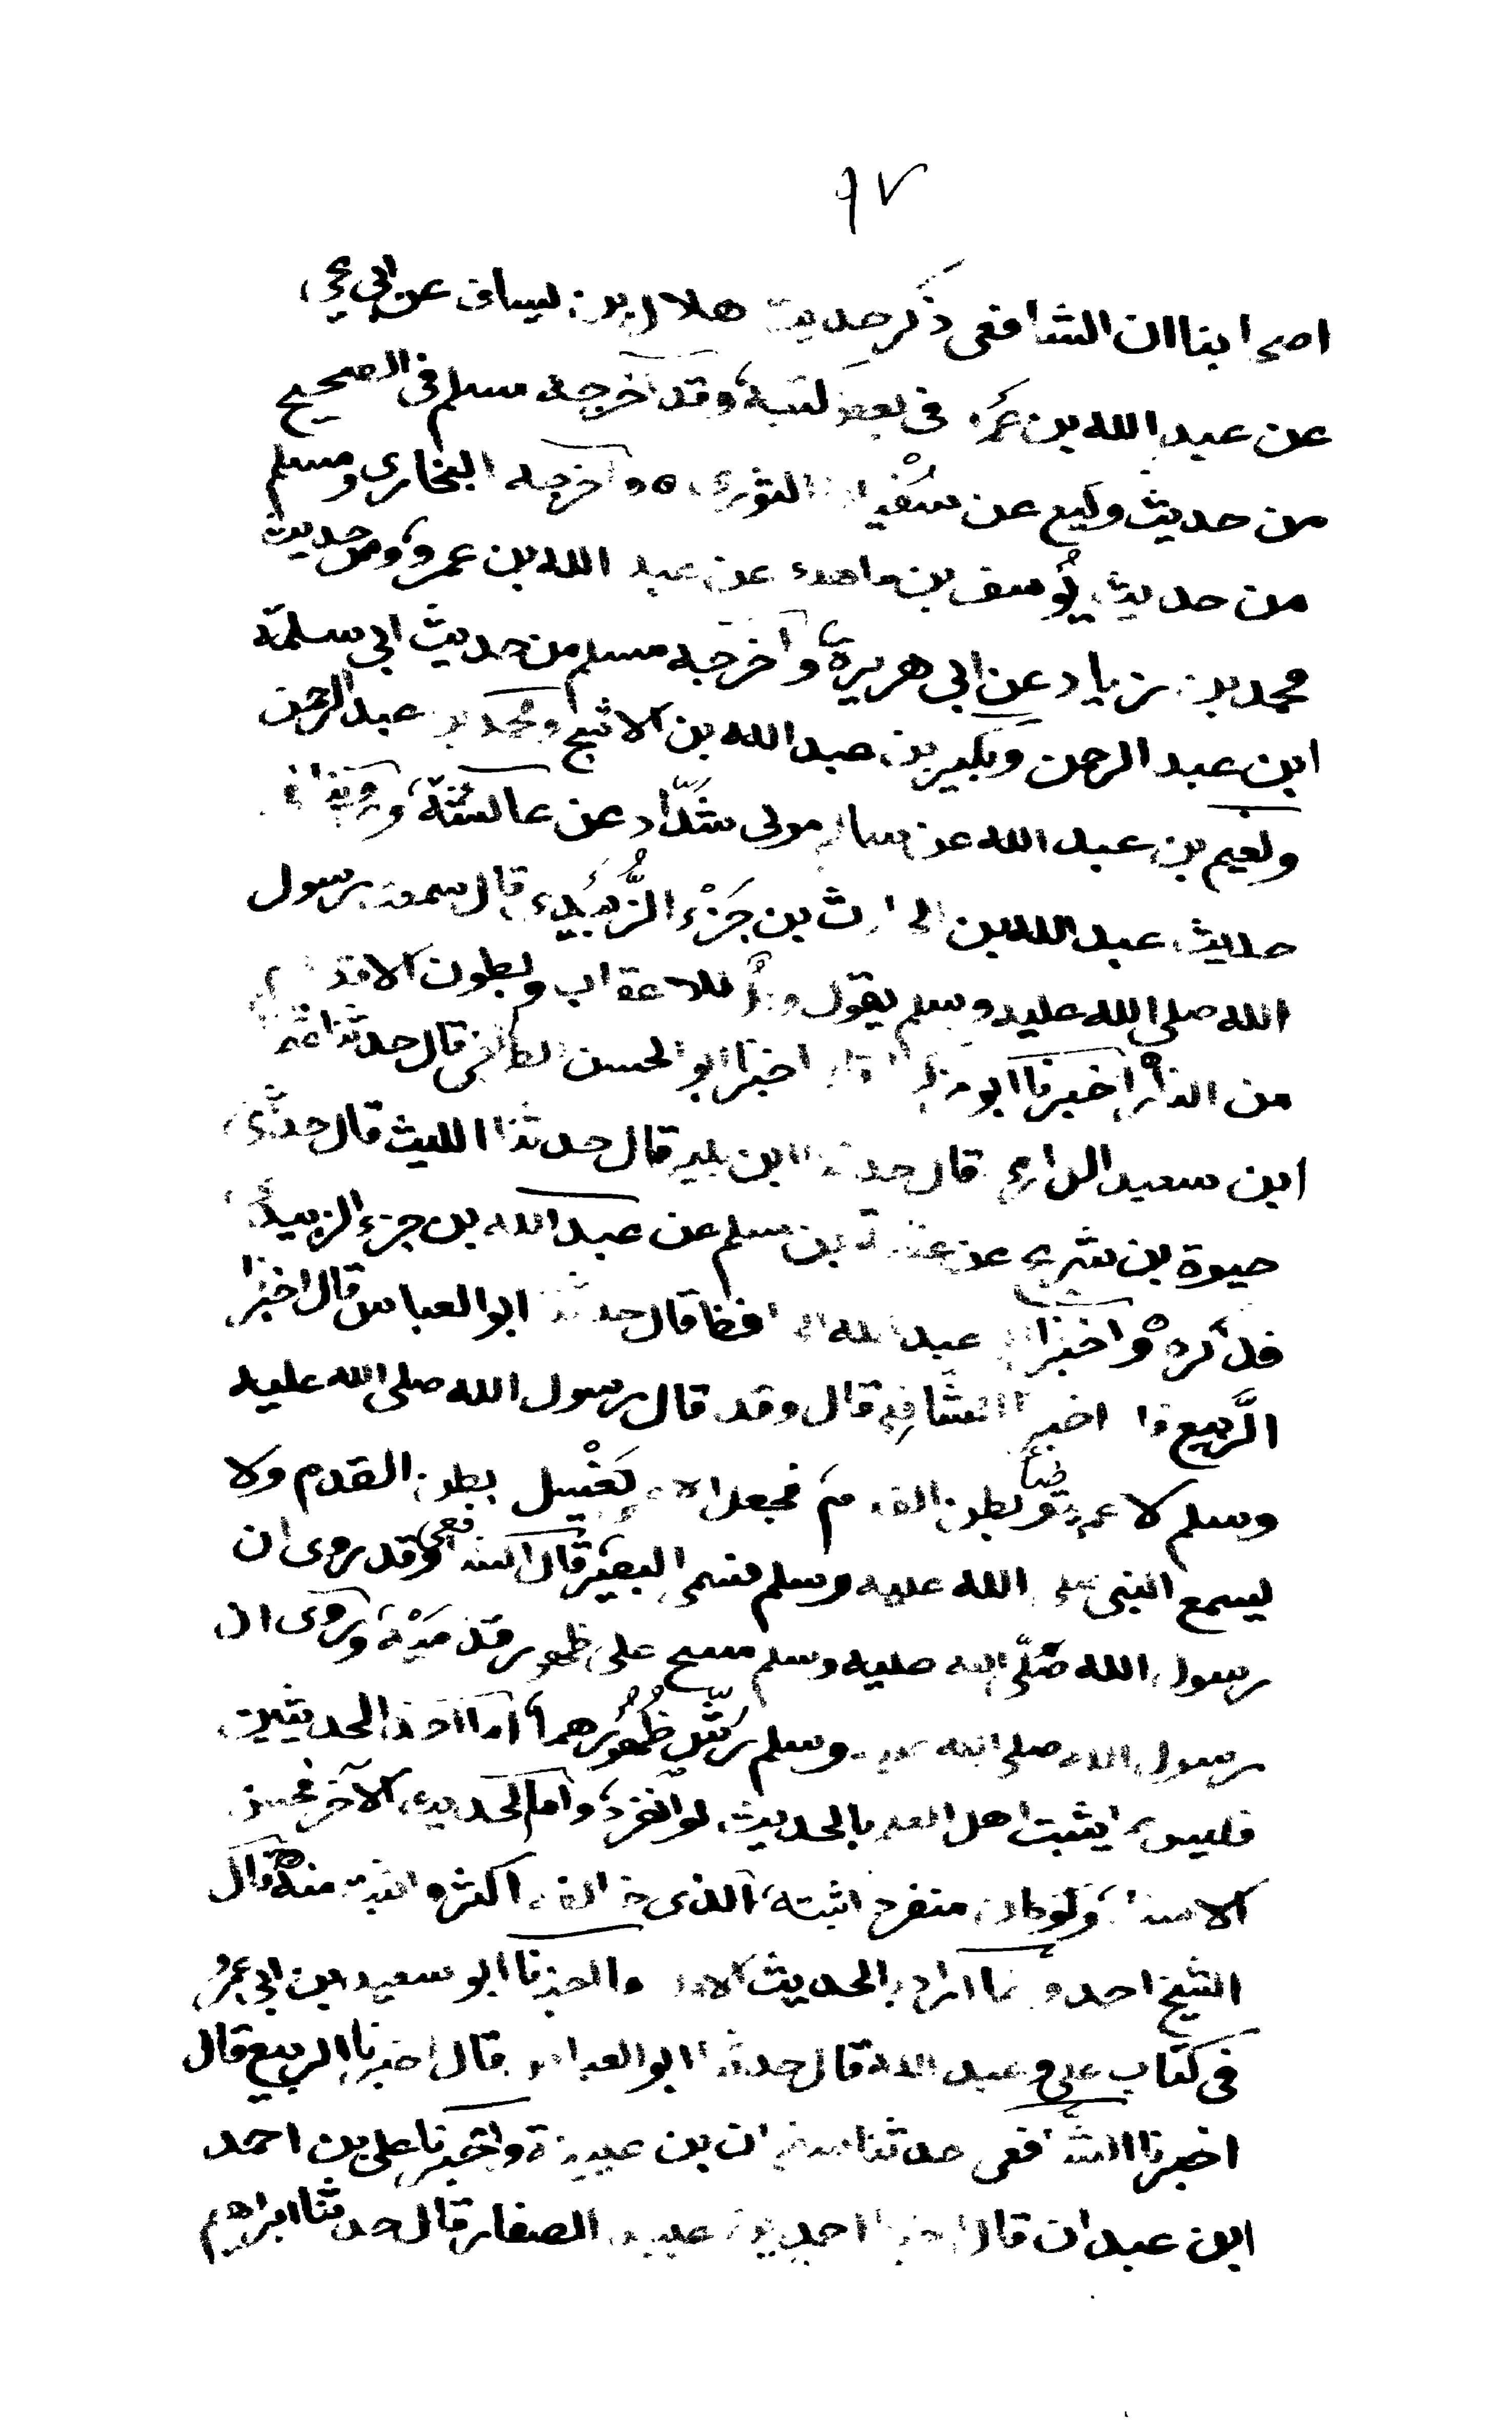 ٩٧
اصحابنا ان الشافعي ذكر حديث هلال بن يساف عن ابي يحيى
عن عبد الله بن عمرو في بعض كتبه وقد اخرجه مسلم في الصحيح
من حديث وكيع عن سُفْيان الثوري ٥ واخرجه البخاري ومسلم
من حديث يُوسف بن ماهك عن عبد الله بن عمرو ومن حديث
محمد بن زياد عن ابي هريرة واخرجه مسلم من حديث ابي سلمة
ابن عبد الرحمن وبكير بن عبد الله بن الاشج ومحمد بن عبد الرحمن
ونعيم بن عبد الله عن سالم مولى شدّاد عن عائشة وروينا في
حديث عبد الله بن الحارث بن جَزْء الزُّبَيدي قال سمعت رسول
الله صلى الله عليه وسلم يقول ويلٌ للاعقاب وبطون الاقدام
من النار اخبرنا ابو زكريا قال اخبرنا ابو الحسن الطرائفي قال حدثنا عثمان
ابن سعيد الدارمي قال حدثنا ابن بكير قال حدثنا الليث قال حدثني
حيوة بن شريح عن عقبة بن مسلم عن عبد الله بن جزء الزبيدي
فذكره واخبرنا ابو عبد الله الحافظ قال حدثنا ابو العباس قال اخبرنا
الرَّبيع قال اخبرنا الشّافعي قال وقد قال رسول الله صلى الله عليه
وسلم لاعمى يتوضأ بطن القدم فجعل الاعمى يَغْسِل بطن القدم ولا
يسمع النبي صلى الله عليه وسلم فسمي البصير قال الشافعي وقد روى ان
رسول الله صَلّى الله عليه وسلم مسح على ظهور قدميْه وروى ان
رسول الله صلى الله عليه وسلم رشّ ظُهُورهما اما احد الحديثين
فليس مما يثبت اهل العلم بالحديث لو انفرد واما الحديث الآخر فحسن
الاسناد ولو كان منفردا ثبت والذي خالفه اكثر واثبت منه قال
الشيخ احمد وانما اراد بالحديث الاول ما اخبرنا ابو سعيد بن ابي عمرو
في كتاب علي وعبد الله قال حدثنا ابو العباس قال اخبرنا الربيع قال
اخبرنا الشافعي حدثنا سفيان بن عيينة واخبرنا علي بن احمد
ابن عبدان قال اخبرنا احمد بن عبيد الصفار قال حدثنا ابراهيم